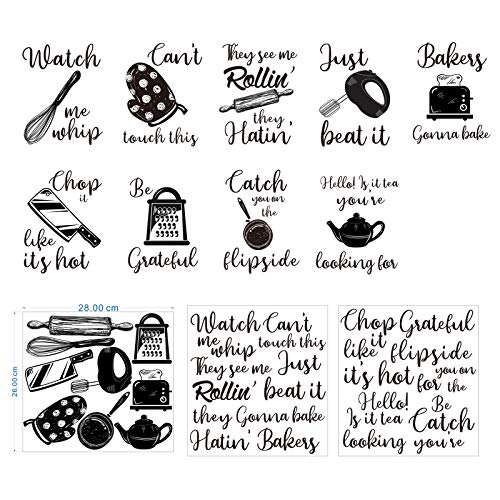 Watch
me
whip
Can't
touch this
They see me
Rollin'
they
Hatin'
Just
beat it
Bakers
Gonna bake
Chop
it
like
it's hot
Be
Grateful
Catch
you on
the
flipside
Hello! Is it tea
you're
looking for
28.00 cm
26.00 cm
Watch Can't
me whip touch this
They see me Just
Rollin' beat it
they Gonna bake
Hatin' Bakers
Chop Grateful
it
like flipside
it's hot you on
for the
Hello! Be
Is it tea Catch
looking you're